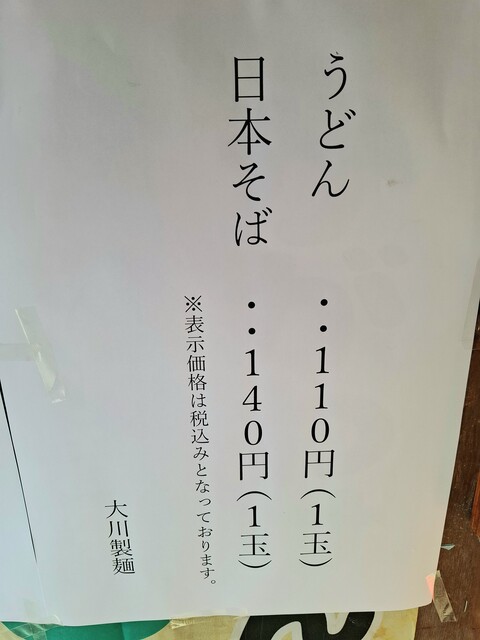 うどん ・・110円(1玉)
日本そば ・・140円(1玉)
※表示価格は税込みとなっております。
大川製麺